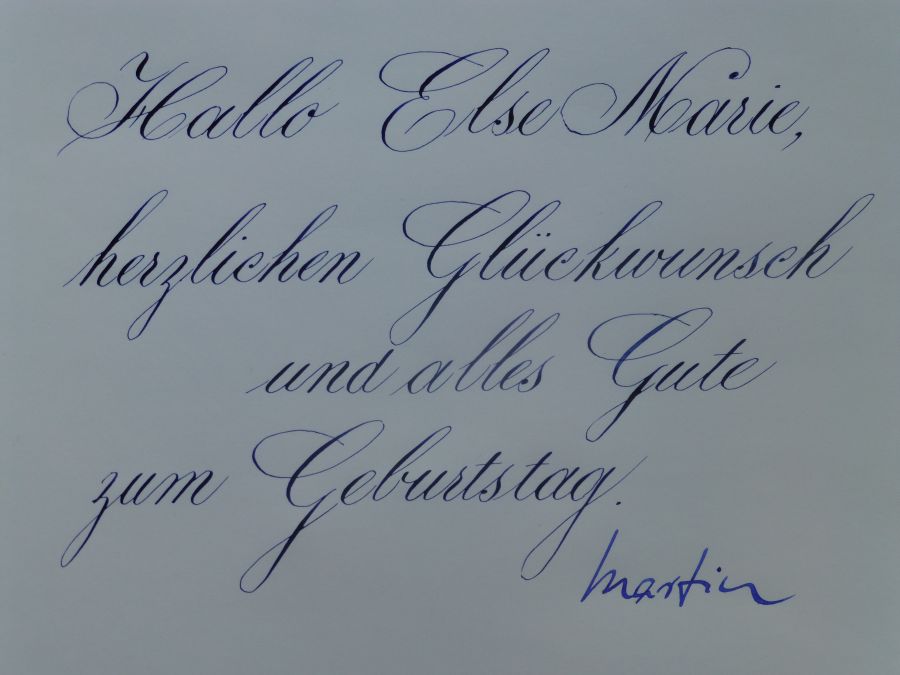 Hallo Else Marie,
herzlichen Glückwunsch
und alles Gute
zum Geburtstag.
Martin